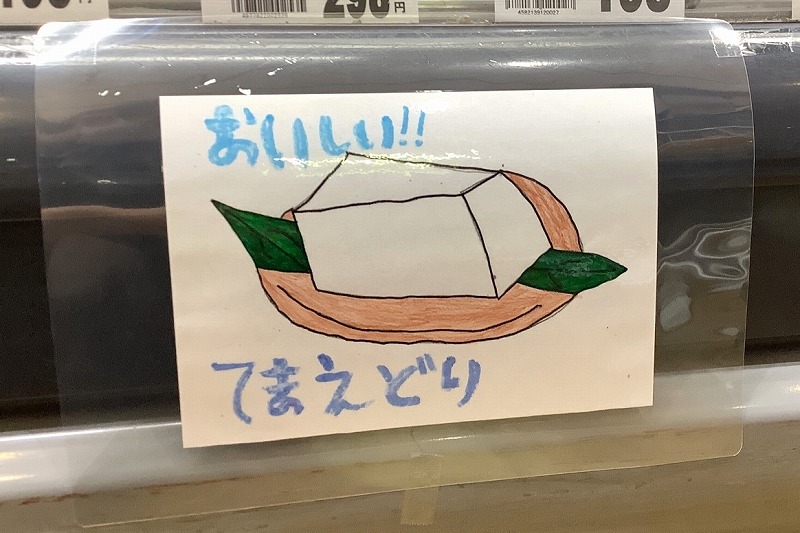 298円
4582139120027
おいしい!!
てまえどり